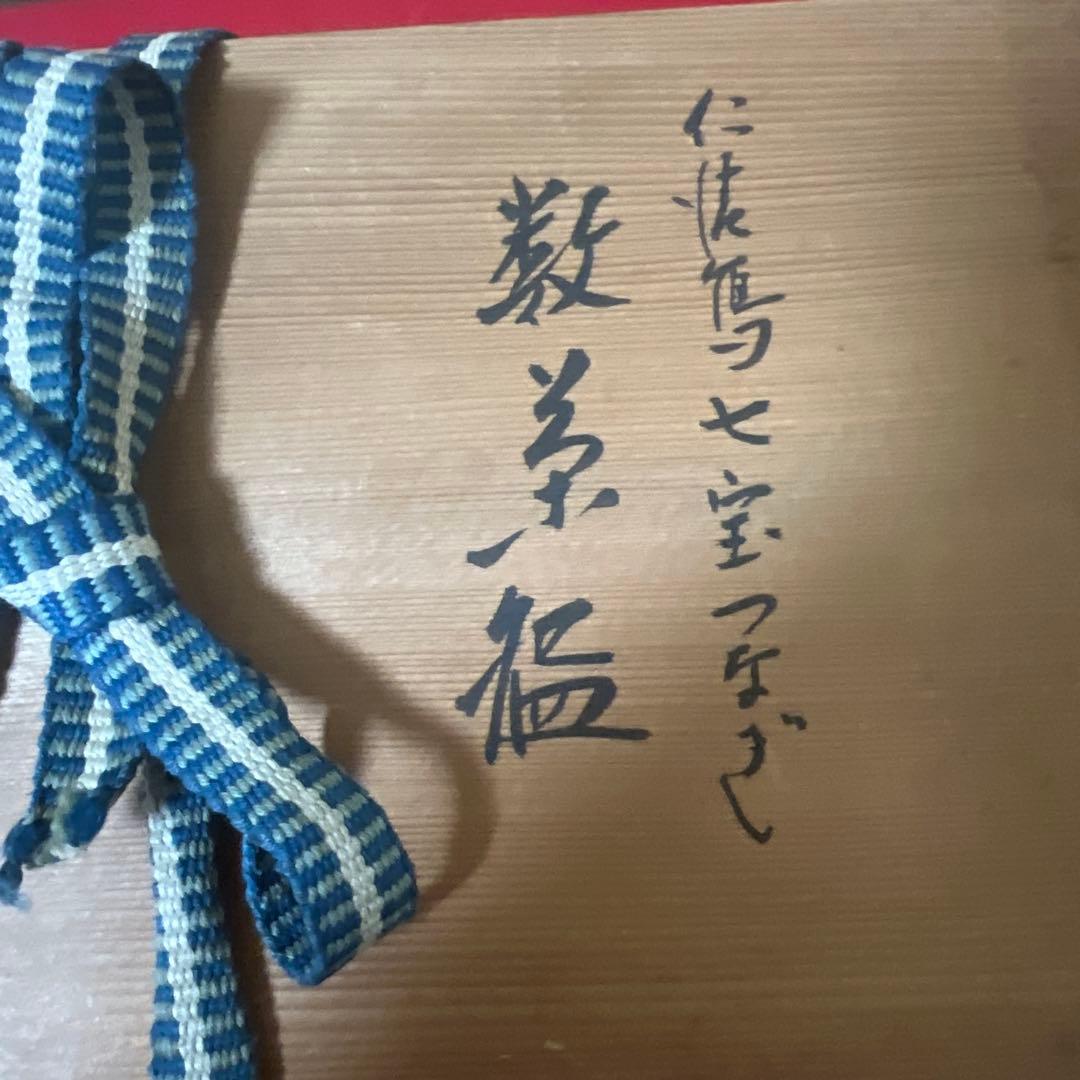 仁清写七宝つなぎ
数茶碗